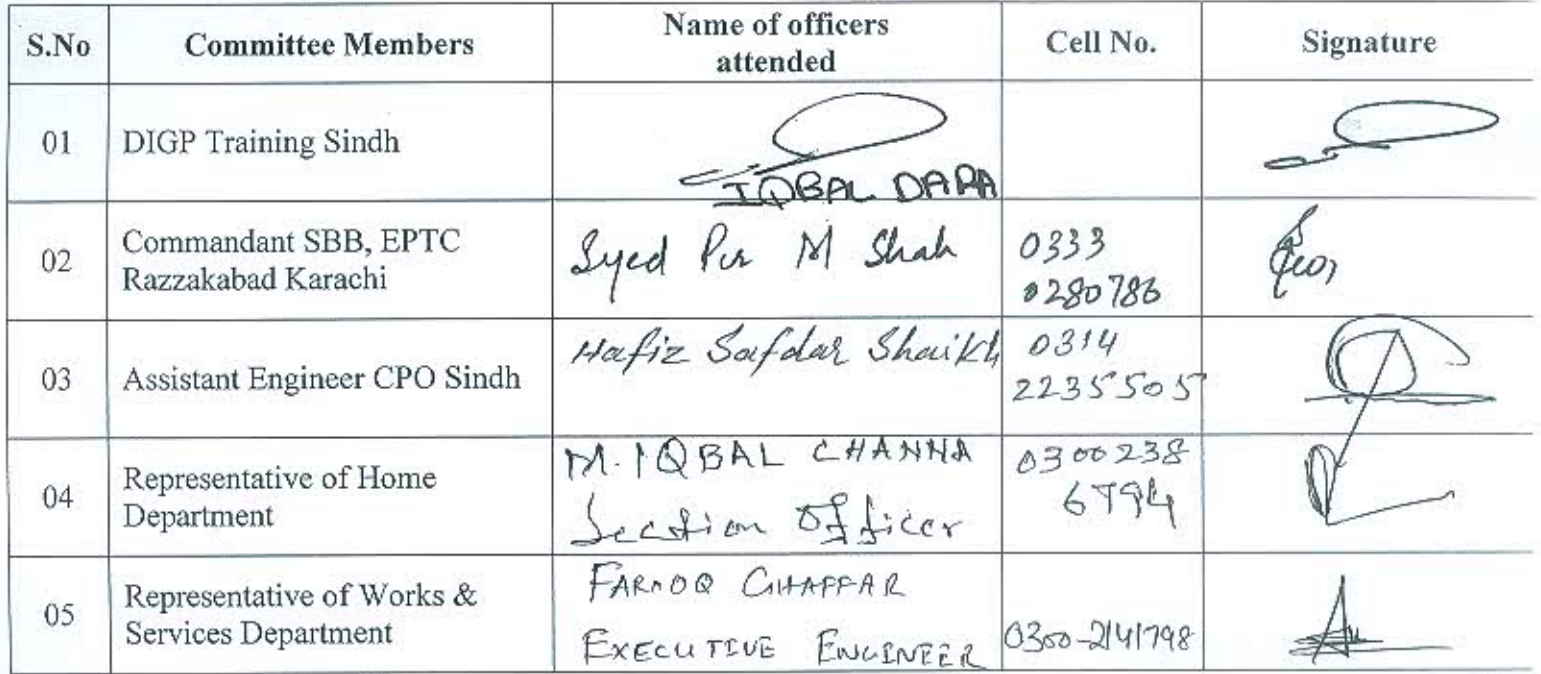 S.No Committee Members Name of officers attended Cell No. Signature
01 DIGP Training Sindh IQBAL DARA
02 Commandant SBB, EPTC Razzakabad Karachi Syed Pir M Shah 0333 0280786
03 Assistant Engineer CPO Sindh Hafiz Safdar Shaikh 0314 2235505
04 Representative of Home Department M. IQBAL CHANNA Section Officer 0300238 6794
05 Representative of Works & Services Department FAROOQ GHAFFAR EXECUTIVE ENGINEER 0300-2141798